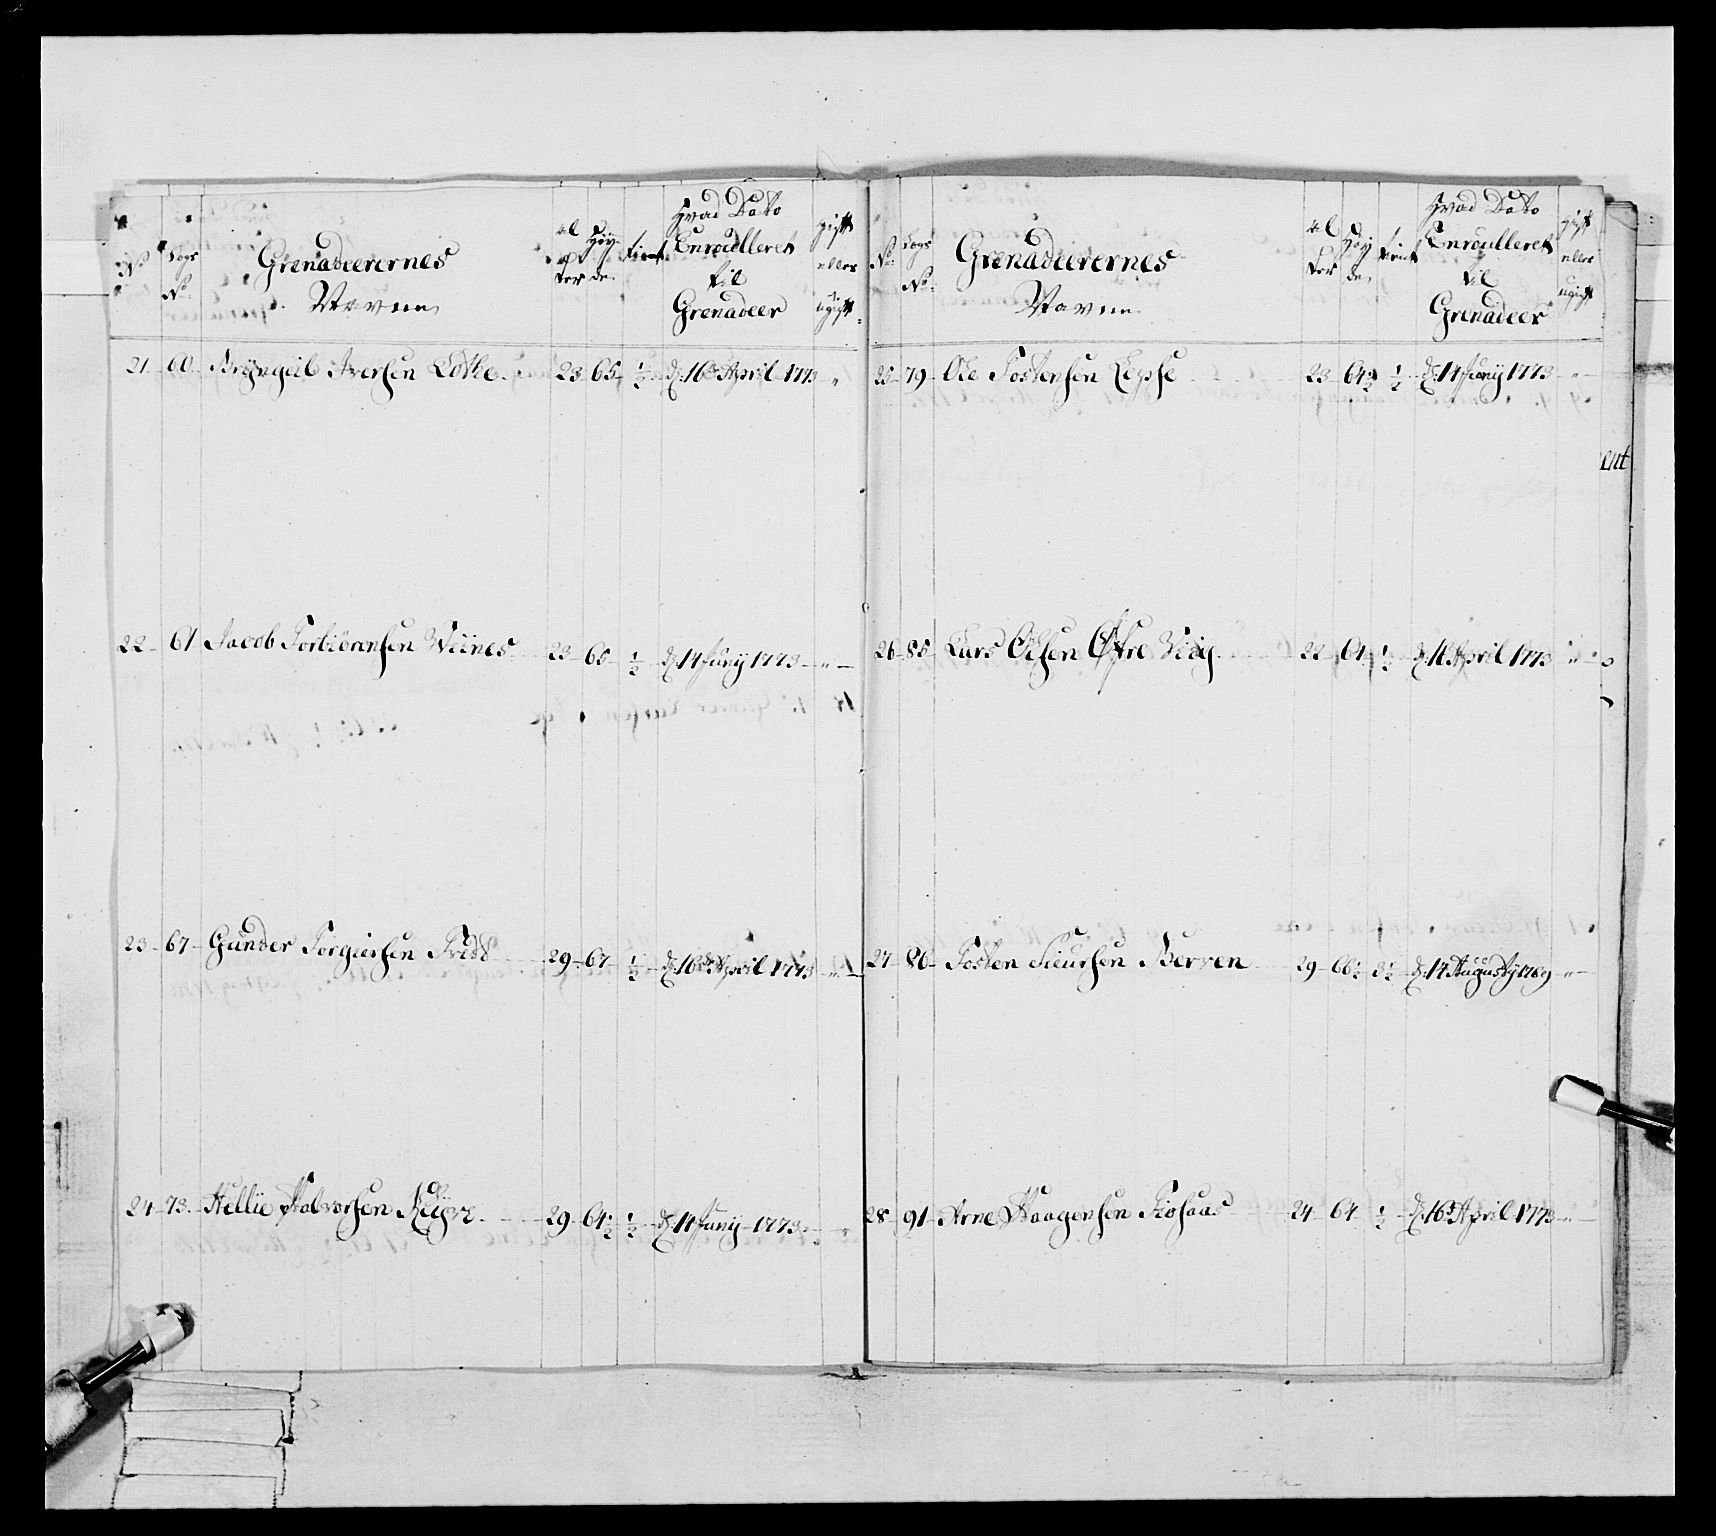 No
Logs No
Grenadeerernes
Navne
al ter
Høy de
tient
hvad Dato
Enroulleret
til
Grenadeer
gift
eller
ugift
21 60 Bryngel Iversen Lothe 23 65 ½ d: 16de April 1773 "
22 61 Jacob Torbiørensen Wiines 23 65 ½ d: 14 Junij 1773 "
23 67 Gunder Torgiersen Træde 29 67 ½ d: 16de April 1773 "
24 73 Hellie Halvorsen Røyre 29 64½ ½ d: 14 Junij 1773 "
No
Logs No
Grenadeerernes
Navne
al ter
Høy de
tient
hvad Dato
Enroulleret
til
Grenadeer
gift
eller
ugift
25 79 Ole Tostensen Lepse 23 64½ ½ d: 14 Junij 1773 "
ent
26 85 Lars Olsen Øfre Wiig 22 64 ½ d: 16 April 1773 "
27 86 Tosten Siursen Berven 29 66½ 3½ d: 14 Augustij 1769 "
28 91 Arne Haagensen Tiosaas 24 64 ½ d: 16de April 1773 "